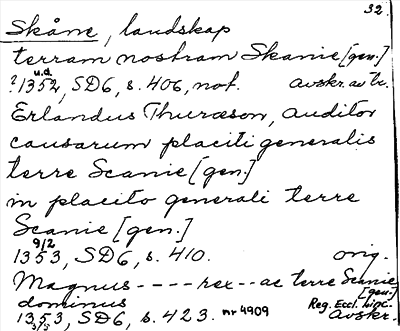 32.
Skåne, landskap
terram nostram Skanie [gen.]
u.d.
?1352, SD6, s. 406, not. avskr. av br.
Erlandus Thuræson, auditor
causarum placiti generalis
terre Scanie [gen.]
in placito generali terre
Scanie [gen.]
9/2
1353, SD6, s. 410. orig.
Magnus - - - - rex -- ac terre Scanie
[gen.]
dominus Reg. Eccl. Linc.
1353, SD6, s. 423. nr 4909 avskr.
5/5